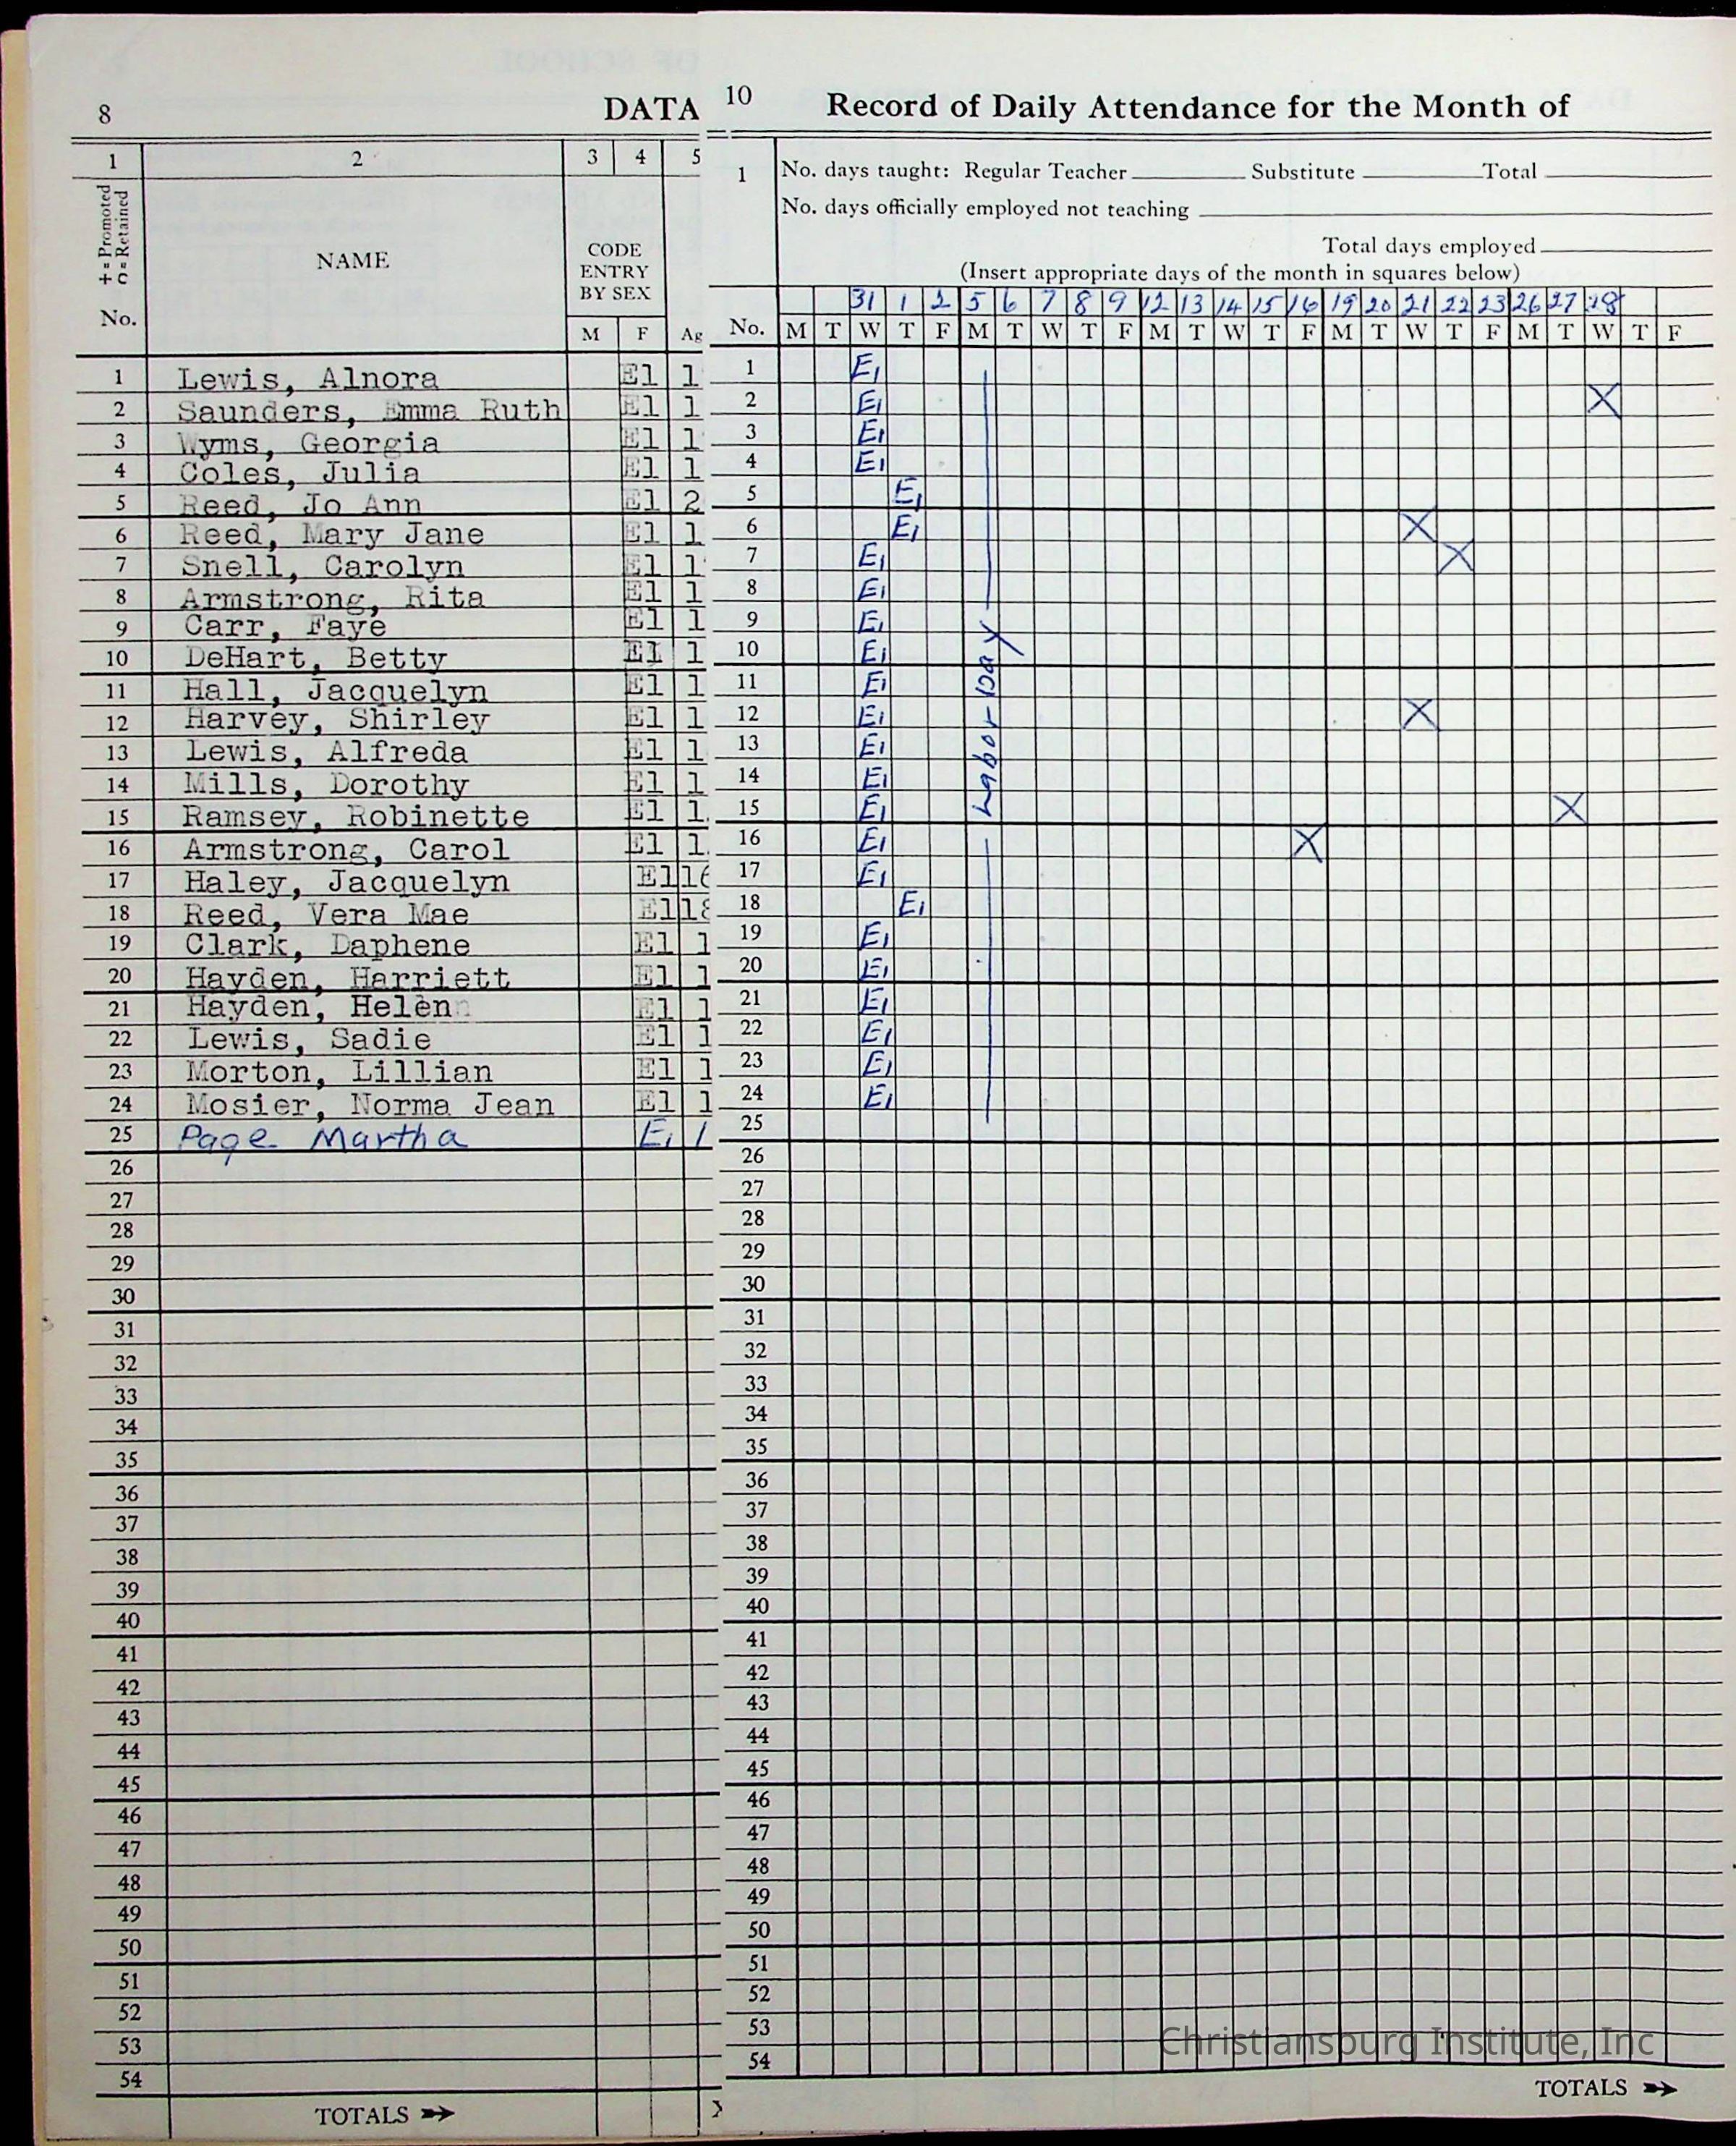 8 DATA
1 2 3 4 5
+ = Promoted
∩ = Retained
No.
NAME
CODE
ENTRY
BY SEX
M F Ag
1 Lewis, Alnora El 1
2 Saunders, Emma Ruth El 1
3 Wyms, Georgia El 1
4 Coles, Julia El 1
5 Reed, Jo Ann El 2
6 Reed, Mary Jane El 1
7 Snell, Carolyn El 1
8 Armstrong, Rita El 1
9 Carr, Faye El 1
10 DeHart, Betty El 1
11 Hall, Jacquelyn El 1
12 Harvey, Shirley El 1
13 Lewis, Alfreda El 1
14 Mills, Dorothy El 1
15 Ramsey, Robinette El 1
16 Armstrong, Carol El 1
17 Haley, Jacquelyn El 16
18 Reed, Vera Mae El 18
19 Clark, Daphene El 1
20 Hayden, Harriett El 1
21 Hayden, Helen El 1
22 Lewis, Sadie El 1
23 Morton, Lillian El 1
24 Mosier, Norma Jean El 1
25 Page Martha E1 1
26
27
28
29
30
31
32
33
34
35
36
37
38
39
40
41
42
43
44
45
46
47
48
49
50
51
52
53
54
TOTALS
10 Record of Daily Attendance for the Month of
1 No. days taught: Regular Teacher Substitute Total
No. days officially employed not teaching
Total days employed
(Insert appropriate days of the month in squares below)
31 1 2 5 6 7 8 9 12 13 14 15 16 19 20 21 22 23 26 27 28
No. M T W T F M T W T F M T W T F M T W T F M T W T F
1 E1
2 E1 X
3 E1
4 E1
5 E1
6 E1 X
7 E1 X
8 E1
9 E1
10 E1
11 E1
12 E1 X
13 E1
14 E1
15 E1 X
16 E1 X
17 E1
18 E1
19 E1
20 E1
21 E1
22 E1
23 E1
24 E1
25
Labor Day
26
27
28
29
30
31
32
33
34
35
36
37
38
39
40
41
42
43
44
45
46
47
48
49
50
51
52
53
54
Christiansburg Institute, Inc
TOTALS